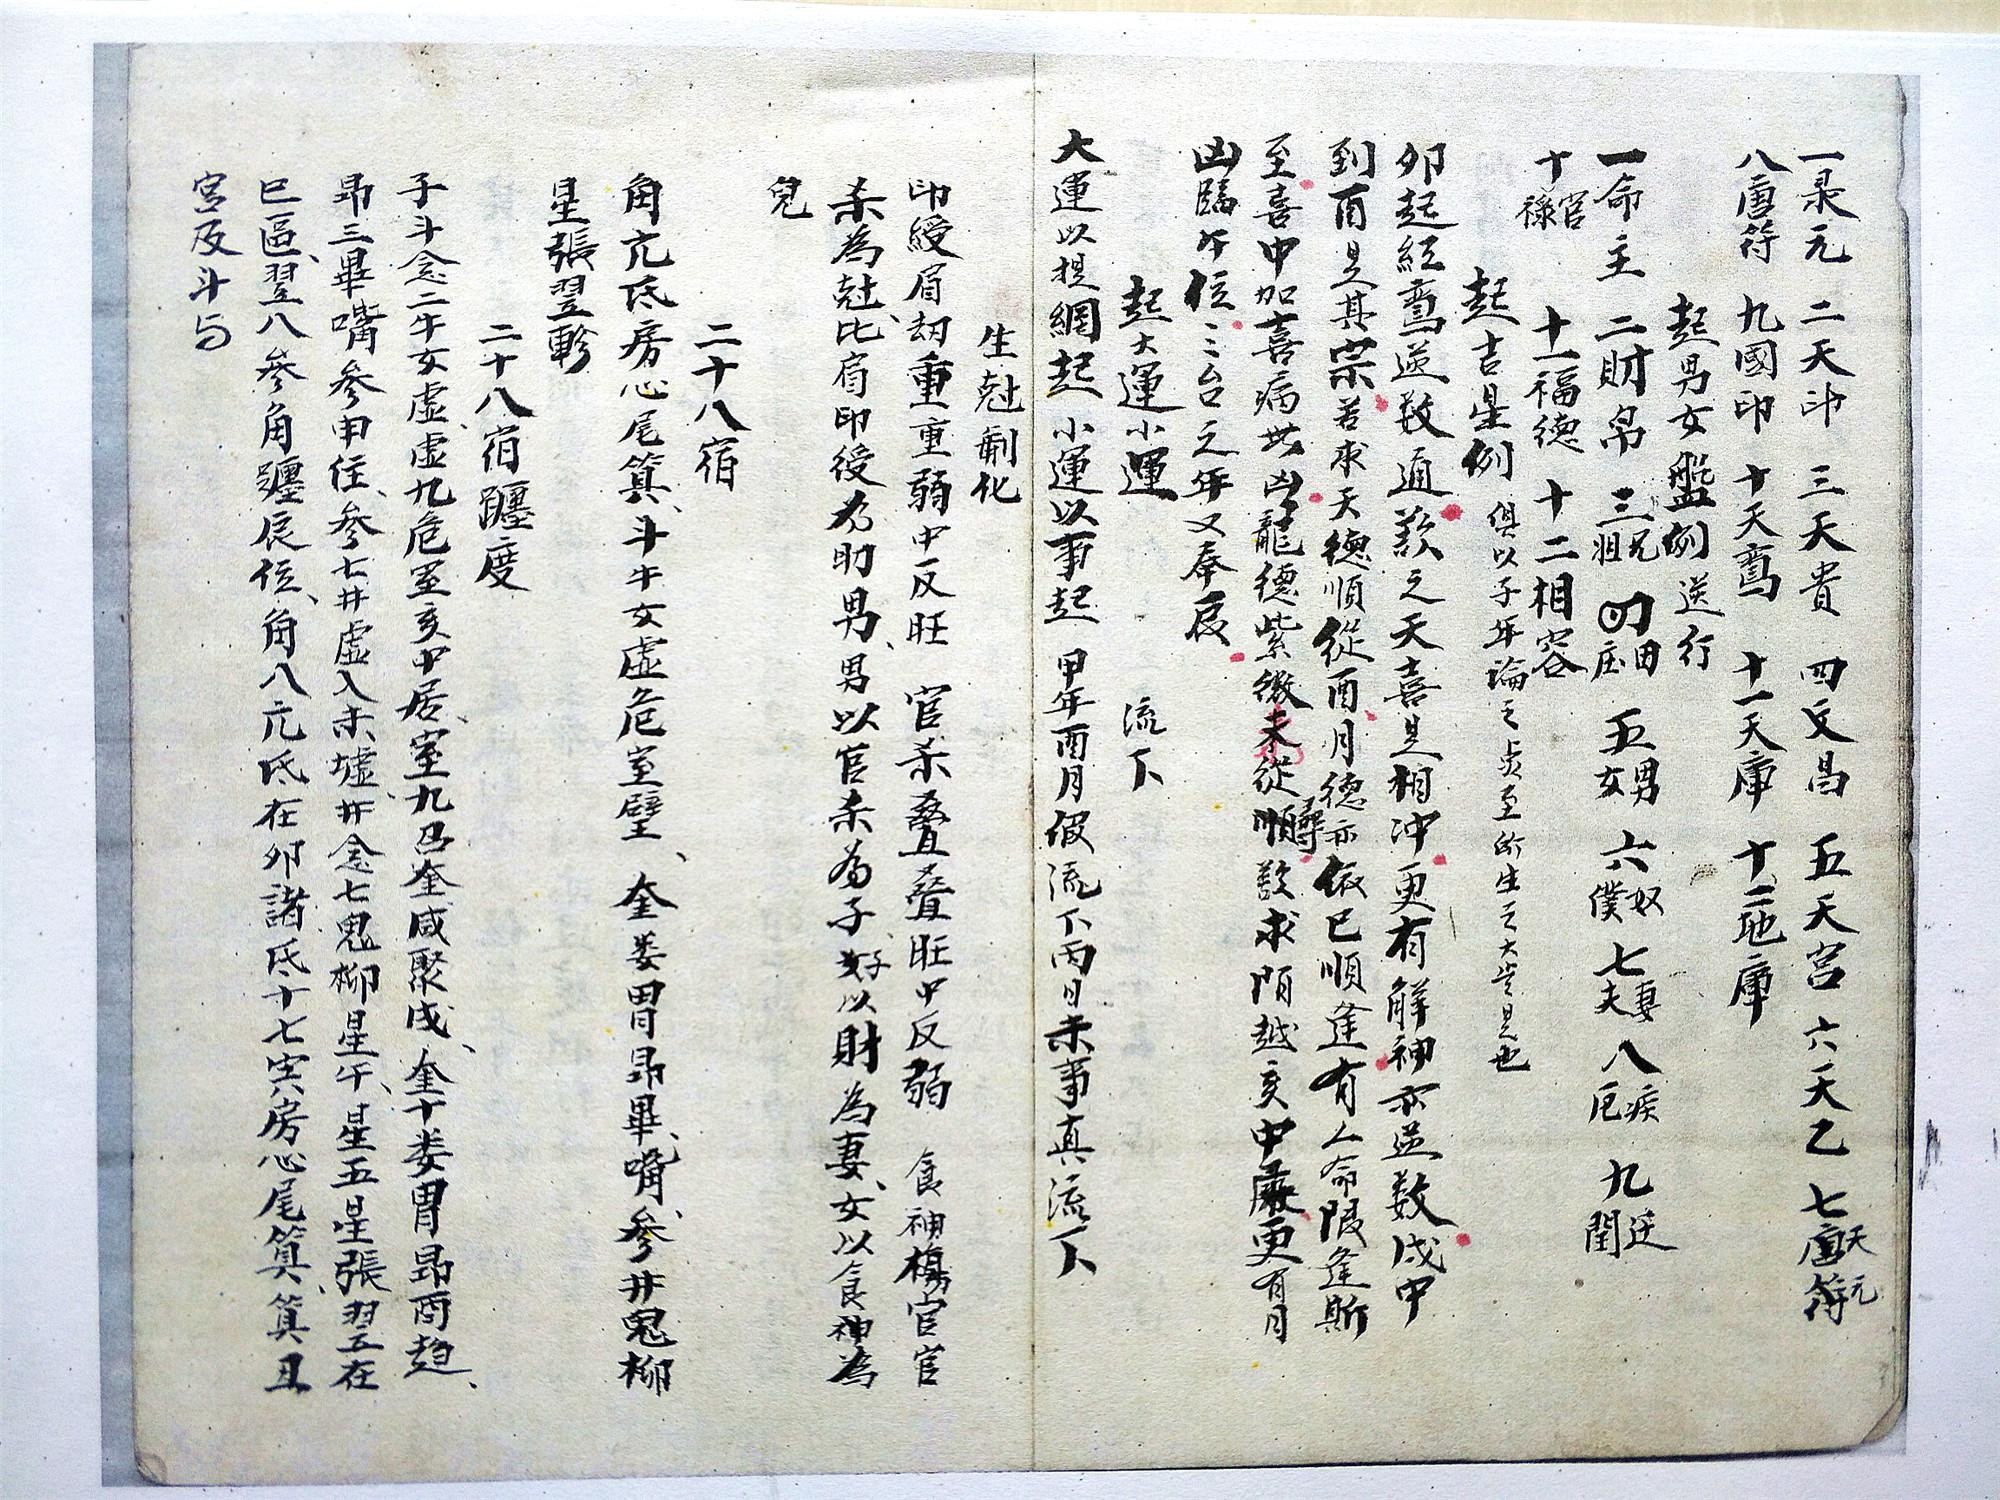 一录元 二天印 三天貴 四文昌 五天宫 六天乙 七唐符 天元
八唐符 九國印 十天鸾 十一天庫 十二地庫
起男女盤例 送行
一命主 二財帛 三兄 四田 五男女 六奴僕 七妻夫 八疾厄 九迁
十官禄 十一福德 十二相容
起吉星例 俱以子年論之 至所生之 是也
卯起紅鸾逆数通 歎之天喜是相冲 更有解神亦逆数 戌中
到酉是其宗 若求天德順從酉 月德亦依巳順逢 有人命限逢斯
至 喜中加喜病无凶 龍德紫微未從順 歎求陌越亥中 更有月
凶臨午位 三台之年又奉辰
起大運小運 流下
大運以提綱起 小運以事起 甲年酉月假流下 丙日未事真流下
生尅制化
印綬肩劫重重弱中反旺 官杀叠叠旺中反弱 食神傷官官
杀為尅、比肩印绶为助男、男以官杀為子好以財為妻、女以食神為
兒
二十八宿
角亢氐房心尾箕、斗牛女虛危室壁、奎娄胃昴畢、嘴、参井鬼柳
星張翌軫
二十八宿躔度
子斗念二牛女虚、虚九危至亥中居、室九 奎咸聚戌、奎十娄胃昴酉趋、
昴三畢嘴参申住、参七井虚入未墟、井念七鬼柳星午、星五星張翌在
巳區、翌八参角躔辰位、角八亢氐在卯諸、氐十七宾房心尾箕、箕丑
宫反斗与